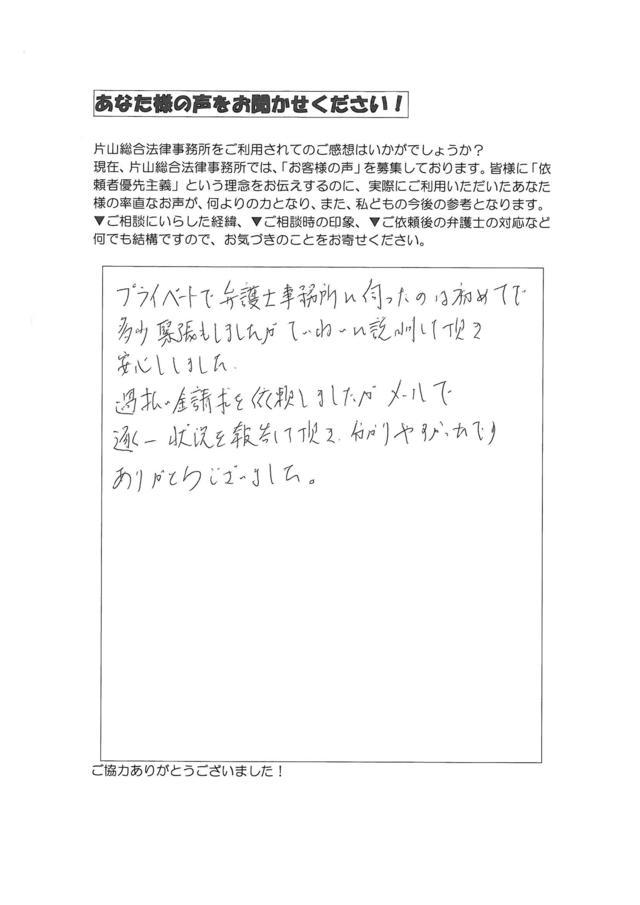 あなた様の声をお聞かせください！
片山総合法律事務所をご利用されてのご感想はいかがでしょうか？
現在、片山総合法律事務所では、「お客様の声」を募集しております。皆様に「依
頼者優先主義」という理念をお伝えするのに、実際にご利用いただいたあなた
様の率直なお声が、何よりの力となり、また、私どもの今後の参考となります。
▼ご相談にいらした経緯、▼ご相談時の印象、▼ご依頼後の弁護士の対応など
何でも結構ですので、お気づきのことをお寄せください。
プライベートで弁護士事務所に伺ったのは初めてで
多少緊張もしましたが ていねいに説明して頂き
安心しました.
過払い金請求を依頼しましたが メールで
逐一 状況を報告して頂き、分かりやすかったです
ありがとうございました。
ご協力ありがとうございました！